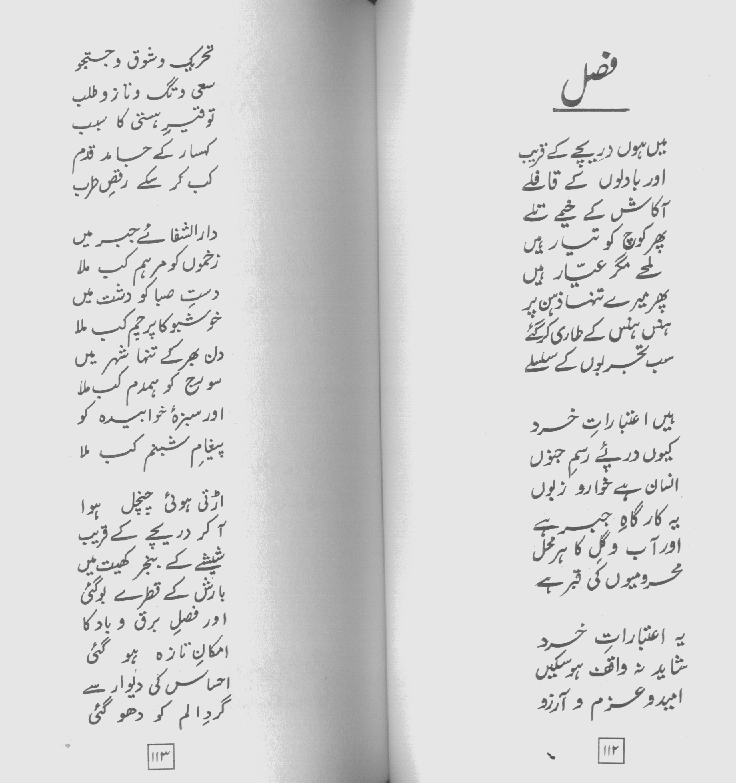 فصل
ہیں ہوں دریچے کے قریب
اور بادلوں کے قافلے
آکاش کے خیمے تلے
پھر کوچ کو تیار ہیں
لمحے مگر عیّار ہیں
پھر میرے تنہا ذہن پر
ہنس ہنس کے طاری کر گئے
سب تجربوں کے سلسلے
ہیں اعتباراتِ خرد
کیوں درپئے رسمِ جنوں
انسان ہے خوار و زبوں
یہ کارگاہِ جبر ہے
اور آب و گل کا ہر محل
محرومیوں کی قبر ہے
یہ اعتباراتِ خرد
شاید نہ واقف ہو سکیں
امید و عزم و آرزو
۱۱۲
تحریک و شوق و جستجو
سعی و تگ و تاز و طلب
توقیرِ ہستی کا سبب
کہسار کے جامد قدم
کب کر سکے رقصِ طرب
دارالشفائے جبر میں
زخموں کو مرہم کب ملا
دستِ صبا کو دشت میں
خوشبو کا پرچم کب ملا
دن بھر کے تنہا شہر میں
سورج کو ہمدم کب ملا
اور سبزۂ خوابیدہ کو
پیغامِ شبنم کب ملا
اڑتی ہوئی چنچل ہوا
آ کر دریچے کے قریب
شیشے کے بنجر کھیت میں
بارش کے قطرے بو گئی
اور فصلِ برق و باد کا
امکانِ تازہ ہو گئی
احساس کی دیوار سے
گردِ الم کو دھو گئی
۱۱۳